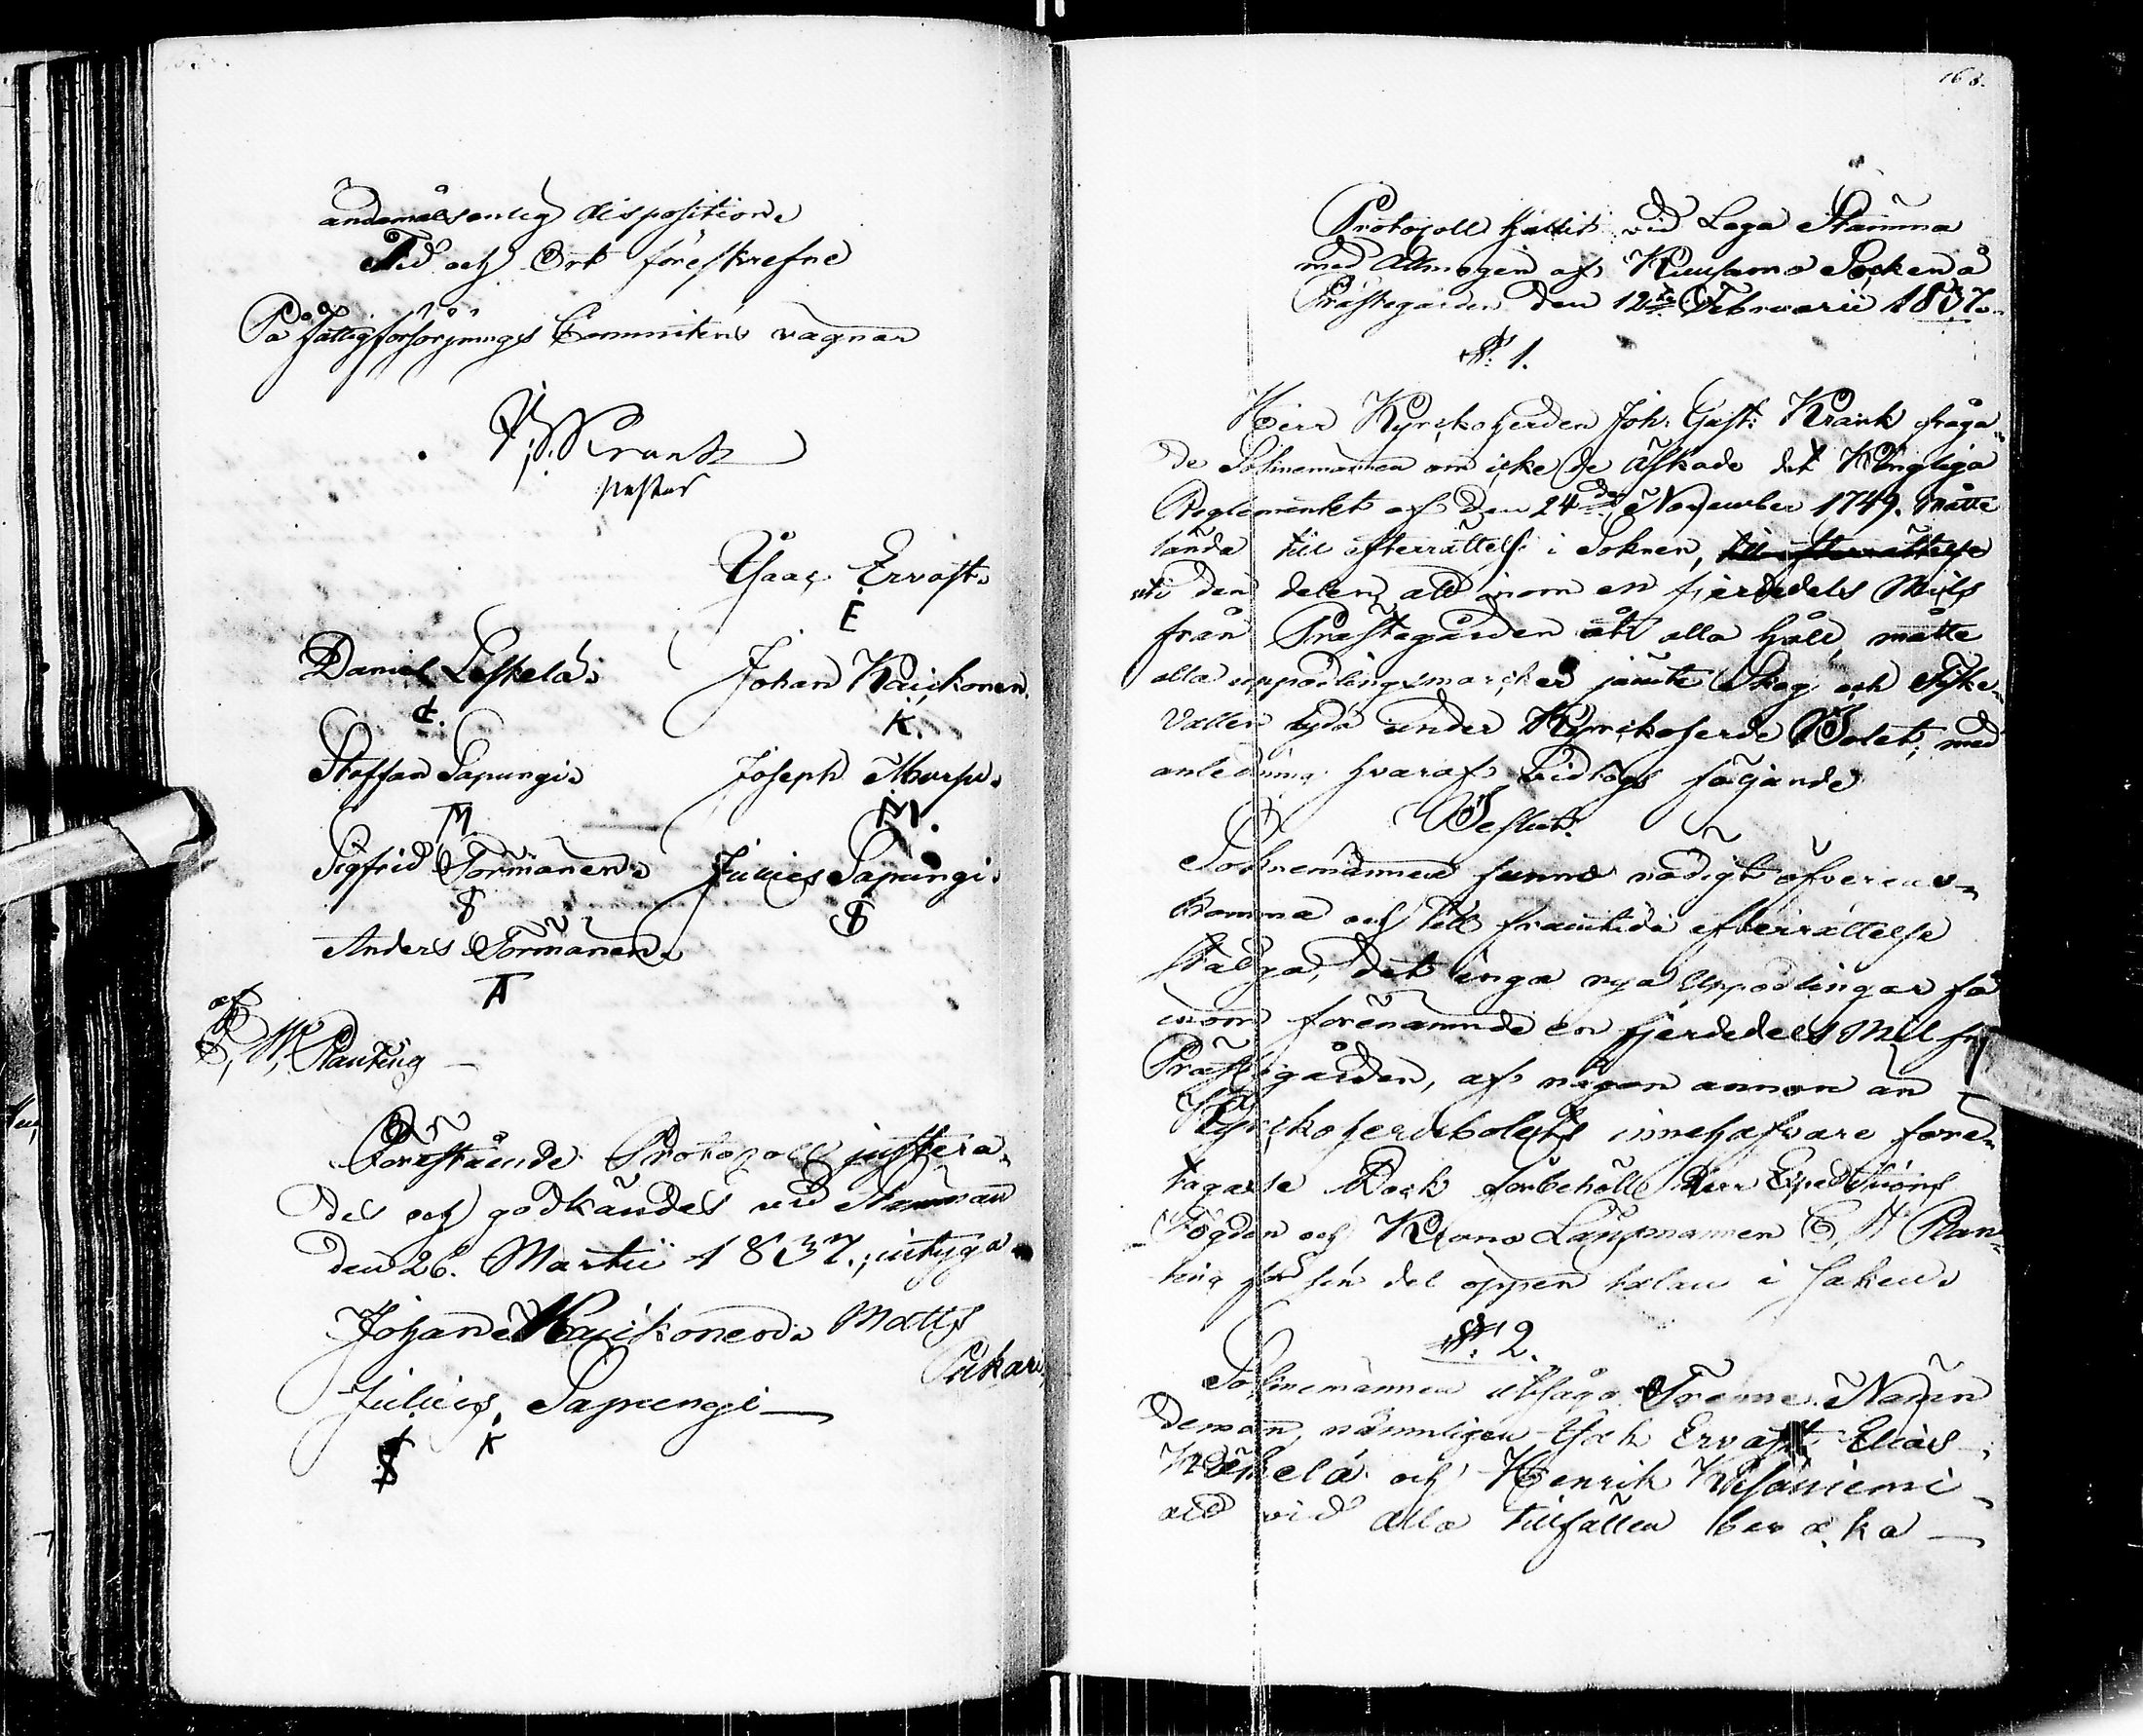 ändamålsenlig disposition.
Tid och Ort föreskrefne
På Fattigförsörjnings Committens vägnar
J. G. Krank
pastor
Isaac Ervast.
E
Daniel Leskelä.
Johan Kaickonen.
K
Staffan Sapungi.
Joseph Murso.
M
M.
Sigfrid Törmänen.
Julius Sapungi.
S
S
Anders Törmänen.
A
af
E. W. Planting
Förestående Protocoll justera-
des och godkändes vid Stämman
den 26. Martii 1837., intyga
Johan Kaickonen. Matts
Pitkär
Julius Sapungi
K
S
168.
Protocoll hållit vid Laga Stämma
med Allmogen af Kuusamo Socken å
Prästegården den 12te Februarii 1837.
§. 1.
Herr Kyrckoherden Joh: Gust: Krank fråga-
de Soknemännen om icke de åstkade det Kongliga
Reglementet af den 24de November 1749. måtte
lända till efterrättelse i Soknen, till efterrättelse
uti den delen, att inom en fierdedels Mils
från Prästegården åt alla håll, måtte
alla uppodlingsmarcker jämte Skog och Fiske-
Vatten lyda under Kyrckoherde Bolet; med
anledning hvaraf Vidtogs följande
Beslut.
Soknemännen funno nödigt öfverens-
komma och till framtida efterrättelse
stadga, det inga nya Uppodlingar få
inom förenämnde en fjerdedels Mil fr
Prästegården, af någon annan än
Kyrckoherdebolets innehafvare före-
tagas. Dock förbehöll Herr Expeditions
Fogden och Krono Länsmannen E. W. Plan-
ting för sin del öppen talan i saken.
§. 2.
Soknemännen utsågo Trenne Nämn
demän, nämnligen Isak Ervast Elias
Käkelä och Henrik Kesäniemi
att vid alla tillfällen bevaka